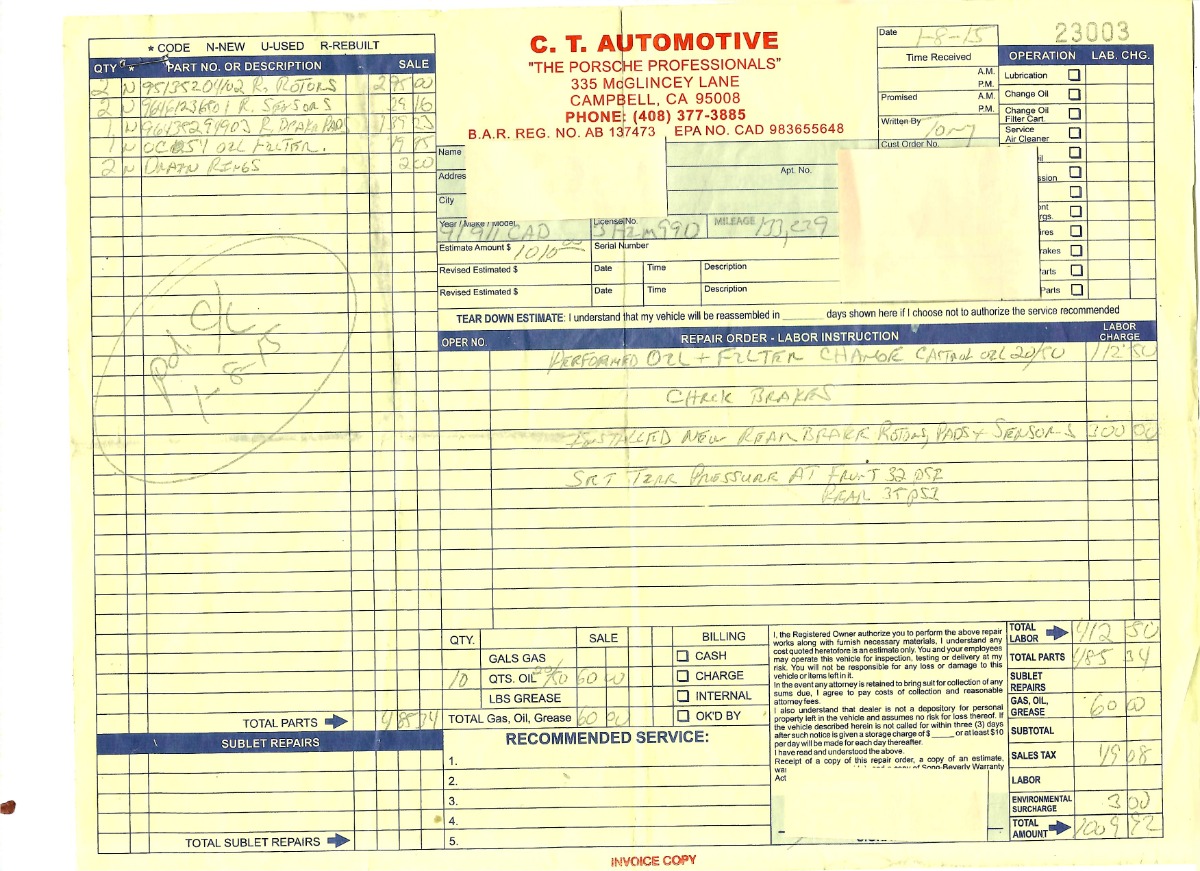 * CODE N-NEW U-USED R-REBUILT
QTY * PART NO. OR DESCRIPTION SALE
2 N 95135204102 R. ROTORS 295 00
2 N R. SENSORS 29 16
1 N R. BRAKE PADS 139 33
1 N OIL FILTER. 19 85
2 N DRAIN RINGS 2 00
pd. C/C
1-8-15
TOTAL PARTS 485 34
SUBLET REPAIRS
TOTAL SUBLET REPAIRS
C. T. AUTOMOTIVE
"THE PORSCHE PROFESSIONALS"
335 McGLINCEY LANE
CAMPBELL, CA 95008
PHONE: (408) 377-3885
B.A.R. REG. NO. AB 137473 EPA NO. CAD 983655648
Name
Addres
City
Apt. No.
Year / Make / Model License No. MILEAGE 133,229
91 911 CAB
Estimate Amount $ 1010.00 Serial Number
Revised Estimated $ Date Time Description
Revised Estimated $ Date Time Description
Date 1-8-15
Time Received
A.M.
P.M.
Promised A.M.
P.M.
Written By Tony
Cust Order No.
23003
OPERATION LAB. CHG.
Lubrication
Change Oil
Change Oil
Filter Cart.
Service
Air Cleaner
il
ssion
nt
rgs.
ires
rakes
arts
Parts
TEAR DOWN ESTIMATE: I understand that my vehicle will be reassembled in ______ days shown here if I choose not to authorize the service recommended
OPER NO. REPAIR ORDER - LABOR INSTRUCTION LABOR CHARGE
PERFORMED OIL + FILTER CHANGE CASTROL OIL 20/50 112 50
CHECK BRAKES
INSTALLED NEW REAR BRAKE ROTORS, PADS + SENSORS 300 00
SET TIRE PRESSURE AT FRONT 32 PSI
REAR 35 PSI
QTY. SALE
GALS GAS
10 QTS. OIL 20/50 60 00
LBS GREASE
TOTAL Gas, Oil, Grease 60 00
BILLING
CASH
CHARGE
INTERNAL
OK'D BY
RECOMMENDED SERVICE:
1.
2.
3.
4.
5.
I, the Registered Owner authorize you to perform the above repair
works along with furnish necessary materials, I understand any
cost quoted heretofore is an estimate only. You and your employees
may operate this vehicle for inspection, testing or delivery at my
risk. You will not be responsible for any loss or damage to this
vehicle or items left in it.
In the event any attorney is retained to bring suit for collection of any
sums due, I agree to pay costs of collection and reasonable
attorney fees.
I also understand that dealer is not a depository for personal
property left in the vehicle and assumes no risk for loss thereof. If
the vehicle described herein is not called for within three (3) days
after such notice is given a storage charge of $ _____ or at least $10
per day will be made for each day thereafter.
I have read and understood the above.
Receipt of a copy of this repair order, a copy of an estimate,
war a copy of Song-Beverly Warranty
Act
TOTAL LABOR 412 50
TOTAL PARTS 485 34
SUBLET REPAIRS
GAS, OIL, GREASE 60 00
SUBTOTAL
SALES TAX 49 08
LABOR
ENVIRONMENTAL SURCHARGE 3 00
TOTAL AMOUNT 1009 92
INVOICE COPY